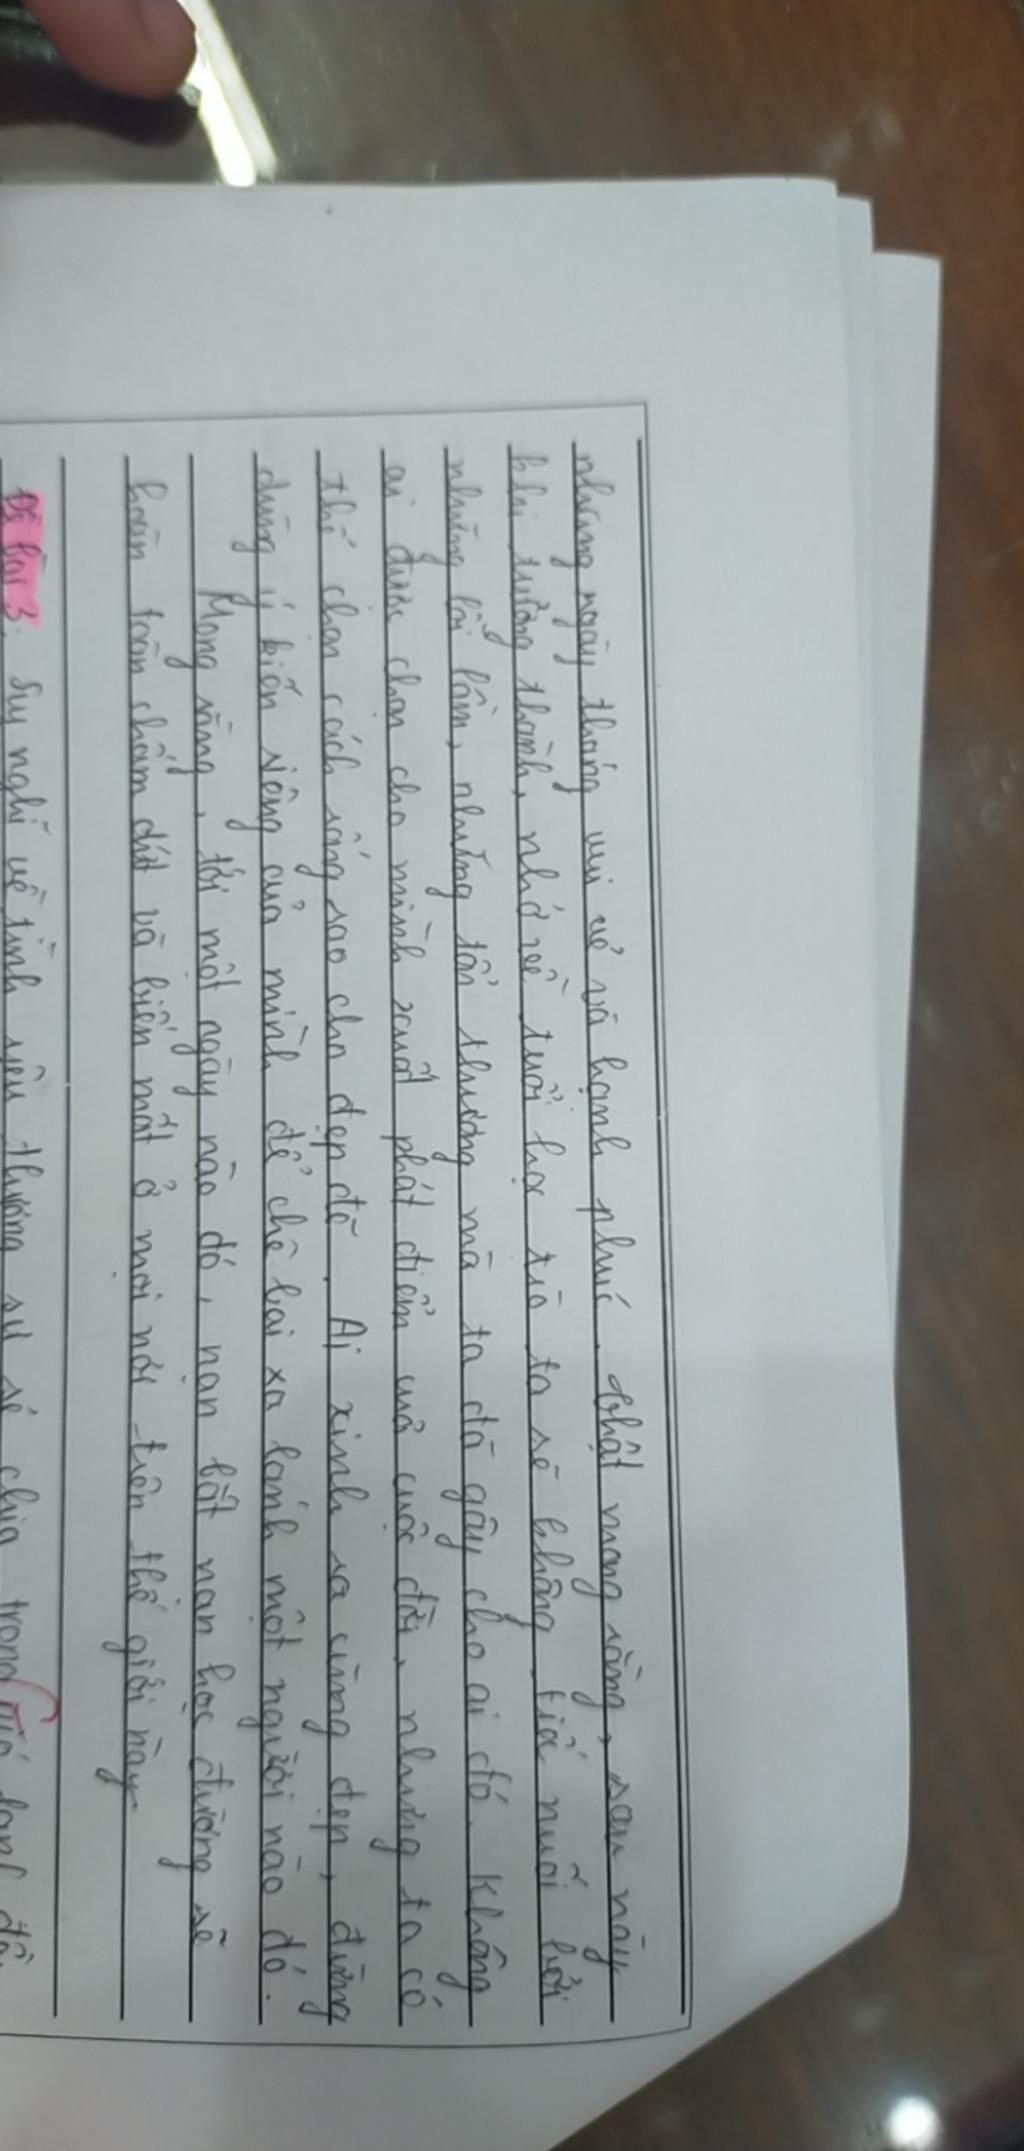 những ngày tháng vui vẻ và hạnh phúc. Thật mong rằng, sau này
khi trưởng thành, nhớ về tuổi học trò ta sẽ không tiếc nuối bởi
những lỗi lầm, những tổn thương mà ta đã gây cho ai đó. Không
ai được chọn cho mình xuất phát điểm của cuộc đời, nhưng ta có
thể chọn cách sống sao cho đẹp đẽ. Ai xinh ra cũng đẹp, đừng
dùng ý kiến riêng của mình để chê bai xa lánh một người nào đó.
Mong rằng, tới một ngày nào đó, nạn bắt nạn học đường sẽ
hoàn toàn chấm dứt và biến mất ở mọi nơi trên thế giới này
Đề bài 3: Suy nghĩ về tình yêu thương sự sẻ chia trong